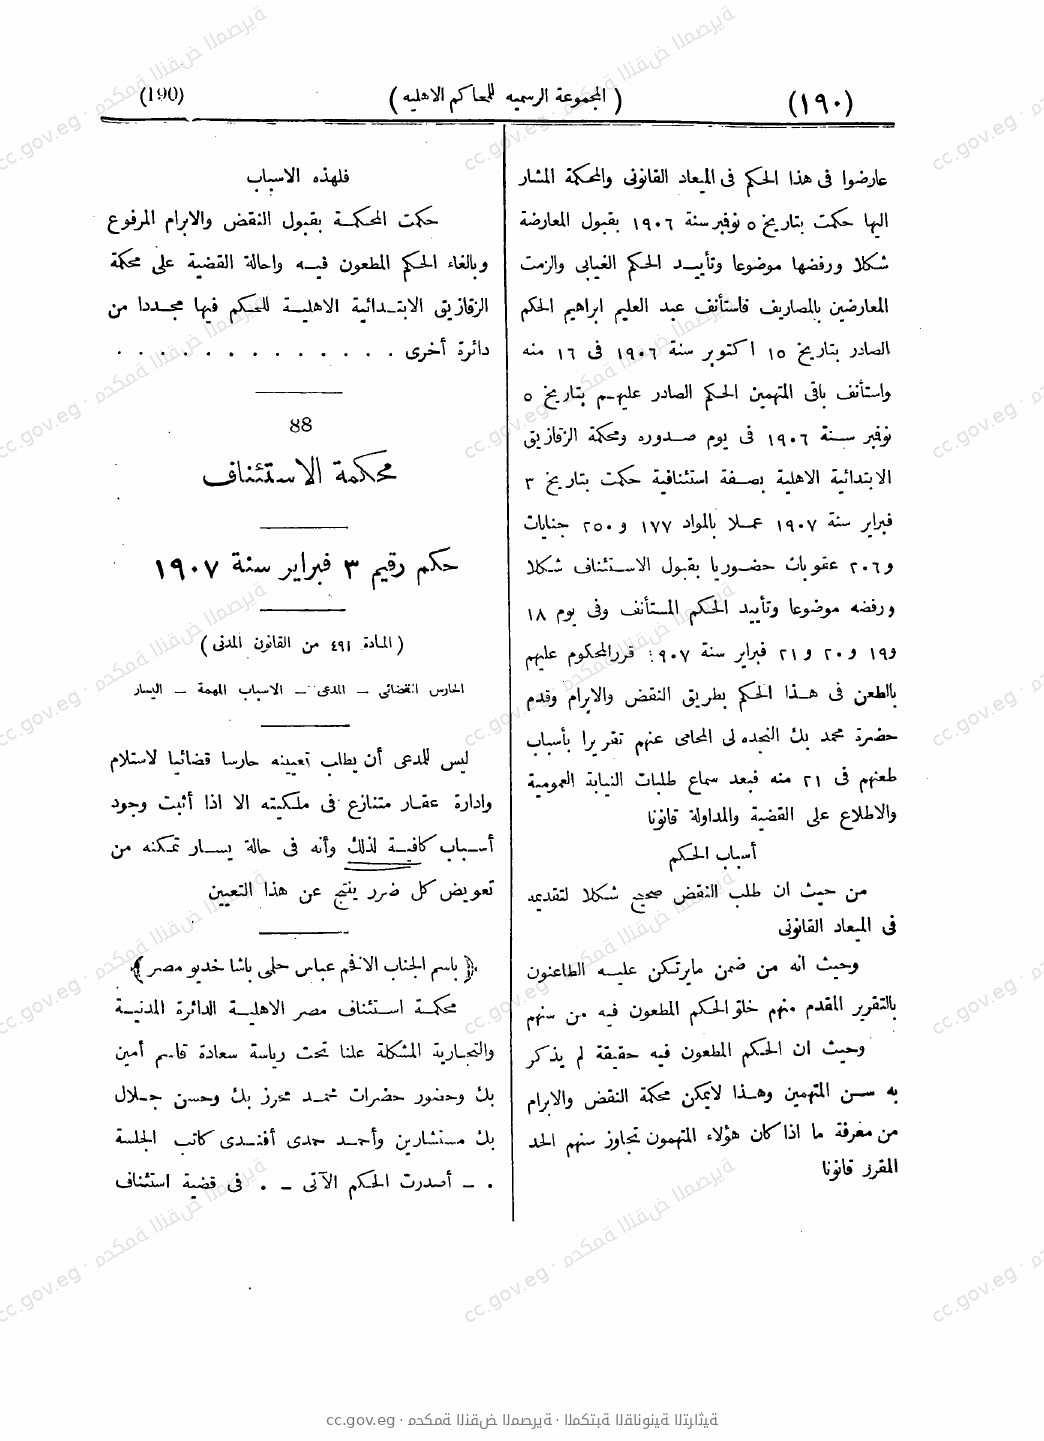 (١٩٠)
( المجموعة الرسميه للمحاكم الاهليه )
(190)
عارضوا فى هذا الحكم فى الميعاد القانونى والمحكمة المشار
اليها حكمت بتاريخ ٥ نوفمبر سنة ١٩٠٦ بقبول المعارضة
شكلا ورفضها موضوعا وتأييد الحكم الغيابى والزمت
المعارضين بالمصاريف فاستأنف عبد العليم ابراهيم الحكم
الصادر بتاريخ ١٥ اكتوبر سنة ١٩٠٦ فى ١٦ منه
واستأنف باقى المتهمين الحكم الصادر عليهم بتاريخ ٥
نوفمبر سنة ١٩٠٦ فى يوم صدوره ومحكمة الزقازيق
الابتدائية الاهلية بصفة استئنافية حكمت بتاريخ ٣
فبراير سنة ١٩٠٧ عملا بالمواد ١٧٧ و ٢٥٠ جنايات
و٢٠٦ عقوبات حضوريا بقبول الاستئناف شكلا
ورفضه موضوعا وتأييد الحكم المستأنف وفى يوم ١٨
و١٩ و ٢٠ و ٢١ فبراير سنة ٩٠٧ قرر المحكوم عليهم
بالطعن فى هذا الحكم بطريق النقض والابرام وقدم
حضرة محمد بك النجده لى المحامى عنهم تقريرا بأسباب
طعنهم فى ٢١ منه فبعد سماع طلبات النيابة العمومية
والاطلاع على القضية والمداولة قانونا
أسباب الحكم
من حيث ان طلب النقض صحيح شكلا لتقديمه
فى الميعاد القانونى
وحيث انه من ضمن مايرتكن عليه الطاعنون
بالتقرير المقدم منهم خلو الحكم المطعون فيه من سنهم
وحيث ان الحكم المطعون فيه حقيقة لم يذكر
به سن المتهمين وهذا لايمكن محكمة النقض والابرام
من معرفة ما اذا كان هؤلاء المتهمون تجاوز سنهم الحد
المقرر قانونا
فلهذه الاسباب
حكمت المحكمة بقبول النقض والابرام المرفوع
وبالغاء الحكم المطعون فيه واحالة القضية على محكمة
الزقازيق الابتدائية الاهلية للحكم فيها مجددا من
دائرة أخرى . . . . . . . . . . . . .
88
محكمة الاستئناف
حكم رقيم ٣ فبراير سنة ١٩٠٧
( المادة ٤٩١ من القانون المدنى )
الحارس القضائى – المدعى – الاسباب المهمة – اليسار
ليس للمدعى أن يطلب تعيينه حارسا قضائيا لاستلام
وادارة عقار متنازع فى ملكيته الا اذا أثبت وجود
أسباب كافية لذلك وأنه فى حالة يسار تمكنه من
تعويض كل ضرر ينتج عن هذا التعيين
﴿ باسم الجناب الافخم عباس حلمى باشا خديو مصر ﴾
محكمة استئناف مصر الاهلية الدائرة المدنية
والتجارية المشكلة علنا تحت رياسة سعادة قاسم أمين
بك وحضور حضرات محمد محرز بك وحسن جلال
بك مستشارين وأحمد حمدى أفندى كاتب الجلسة
. – أصدرت الحكم الآتى – . فى قضية استئناف
cc.gov.eg · محكمة النقض المصرية · المكتبة القانونية التراثية